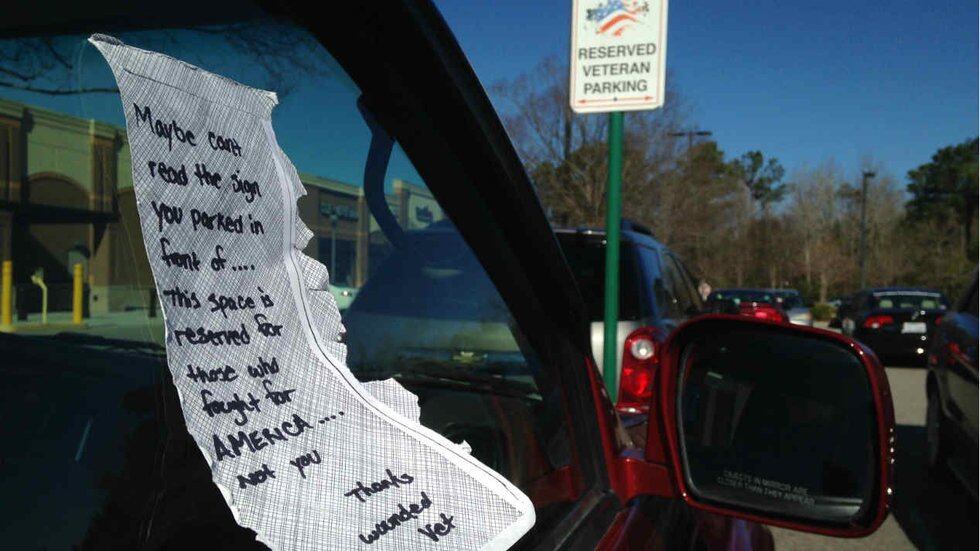 RESERVED
VETERAN
PARKING
Maybe can't
read the sign
you parked in
front of....
This space is
reserved for
those who
fought for
AMERICA....
not you
Thanks
wounded
Vet
OBJECTS IN MIRROR ARE
CLOSER THAN THEY APPEAR